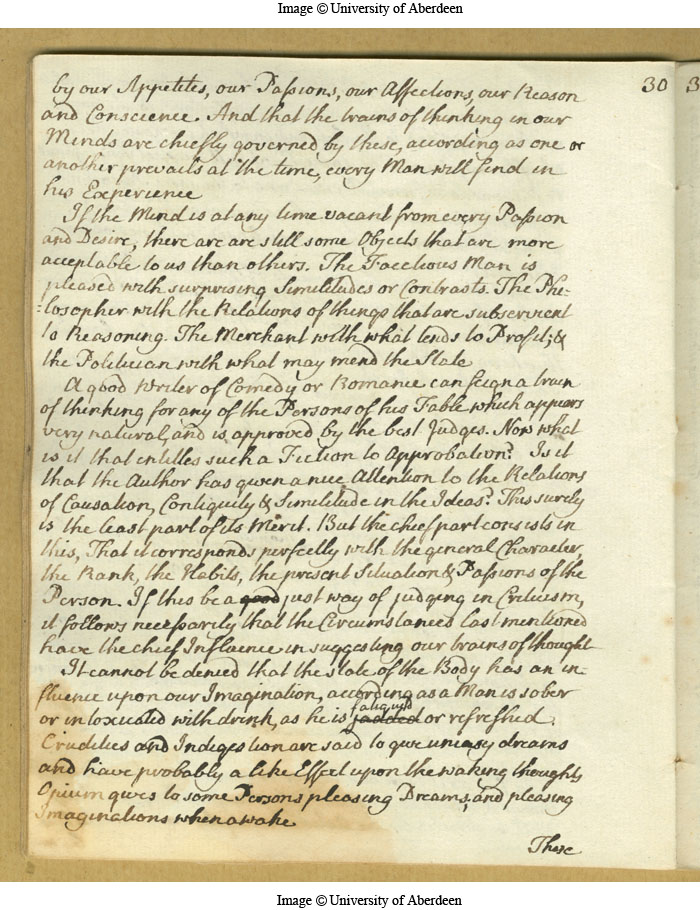 Image © University of Aberdeen
30
3
by our Appetites, our Passions, our Affections, our Reason
and Conscience. And that the trains of thinking in our
Minds are chiefly governed by these, according as one or
another prevails at the time, every Man will find in
his Experience
If the Mind is at any time vacant from every Passion
and Desire, there are are still some Objects that are more
acceptable to us than others. The Facetious Man is
pleased with surprising Similitudes or Contrasts. The Phi=
=losopher with the Relations of things that are subservient
to Reasoning. The Merchant with what tends to Profit; &
the Politician with what may mend the State
A good Writer of Comedy or Romance can feign a train
of thinking for any of the Persons of his Fable which appears
very natural, and is approved by the best Judges. Now what
is it that entitles such a Fiction to Approbation? Is it
that the Author has given a nice Attention to the Relations
of Causation, Contiguity & Similitude in the Ideas? This surely
is the least part of its Merit. But the chief part consists in
this, That it corresponds perfectly with the general Character,
the Rank, the Habits, the present Situation & Passions of the
Person. If this be a good just way of judging in Criticism,
it follows necessarily that the Circumstances last mentioned
have the chief Influence in suggesting our trains of thought
It cannot be denied that the state of the Body has an in
fluence upon our Imagination, according as a Man is sober
or intoxicated with drink, as he is jadded fatigued or refreshed.
Crudities and Indigestion are said to give uneasy dreams
and have probably a like Effect upon the waking thoughts
Opium gives to some Persons pleasing Dreams, and pleasing
Imaginations when awake
These
Image © University of Aberdeen